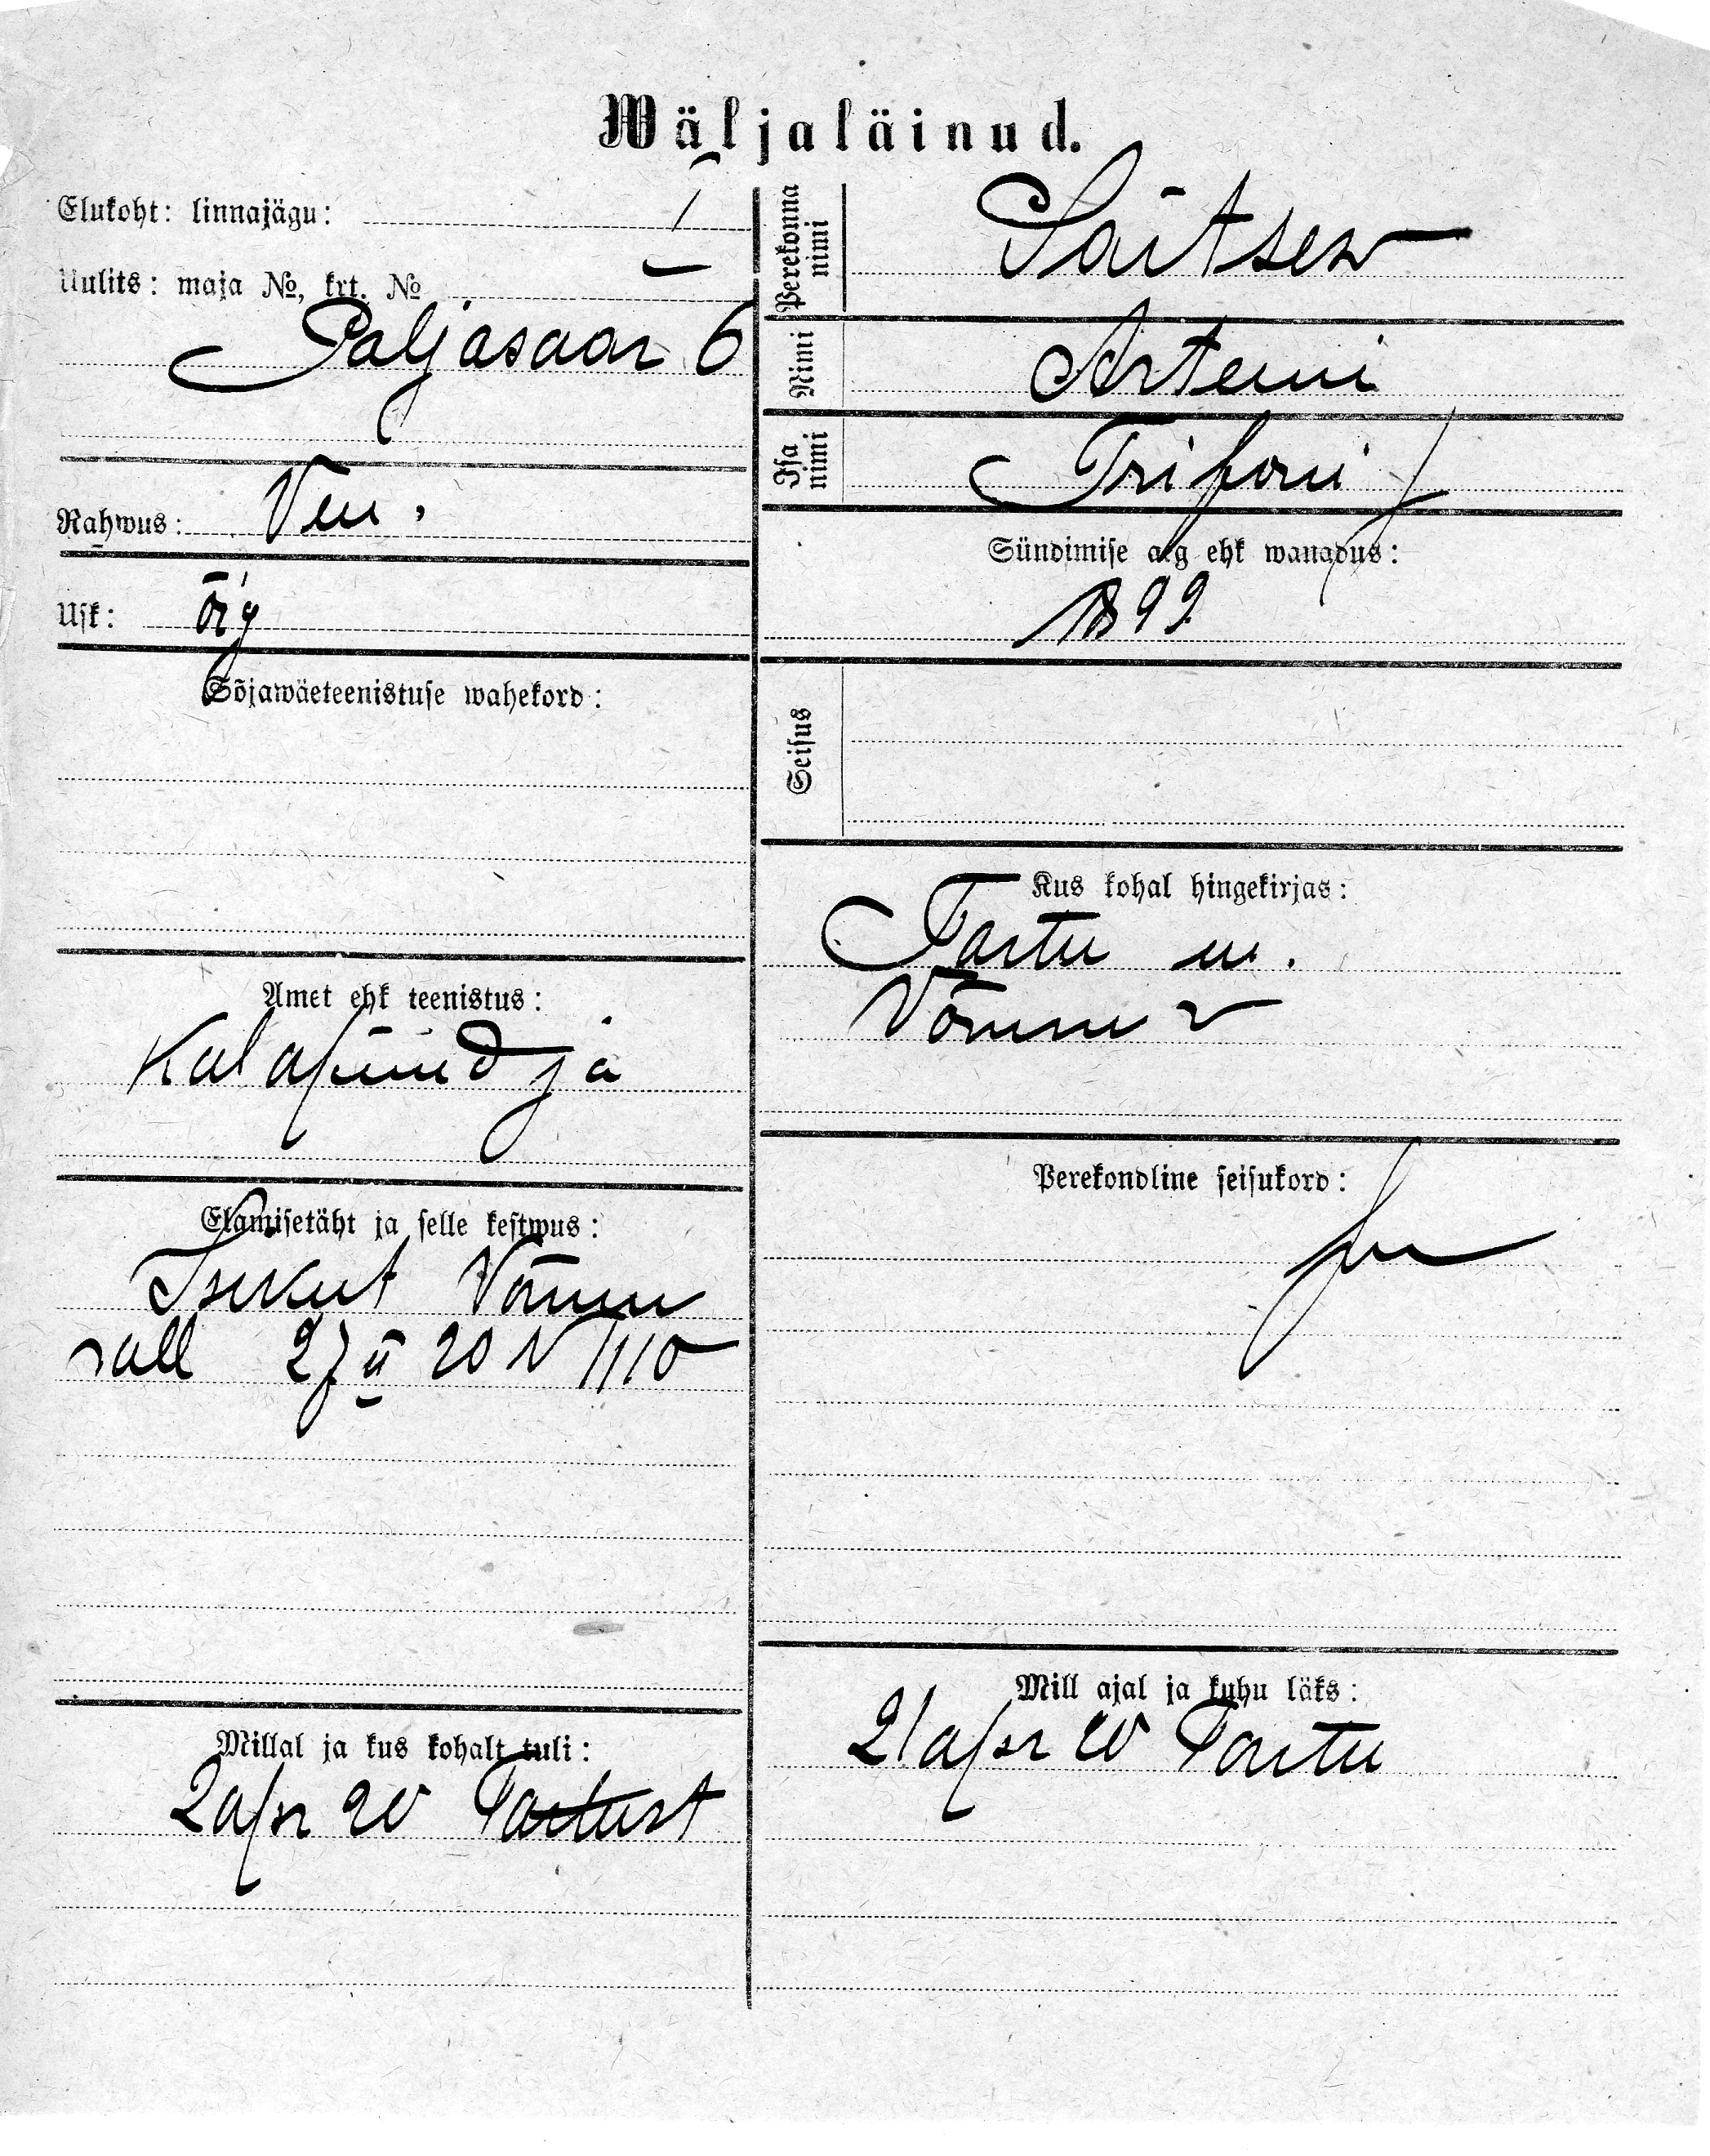 Wäljaläinud.
Elukoht: linnajägu: I
Uulits: maja №, krt. №
Paljasaar 6
Rahwus: Ven.
Usk: õig
Sõjawäeteenistuse wahekord:
Amet ehk teenistus:
Kalapüüdja
Elamisetäht ja selle kestwus:
Isikut Võnnu
vall 27 II 20 N 1110
Millal ja kus kohalt tuli:
2 apr 20 Tartust
Perekonna nimi
Saitsew
Nimi
Artemi
Isa nimi
Trifoni
Sündimise aeg ehk wanadus:
1899
Seisus
Kus kohal hingekirjas:
Tartu m.
Võnnu v
Perekondline seisukord:
Mill ajal ja kuhu läks:
21 apr 20 Tartu